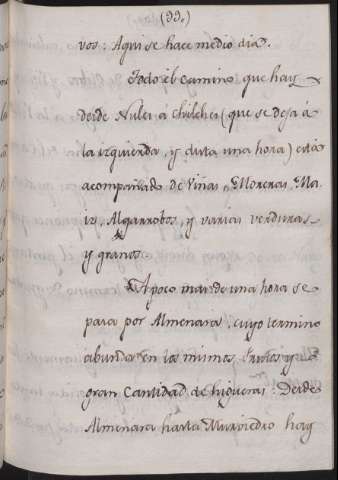 (99.)
vos: Aqui se hace medio dia.
Todo el camino que hay
desde Nules á Chilches (que se deja á
la izquierda, y dista una hora) está
acompañado de Viñas, Moreras, Ma-
iz, Algarrobos, y varias verduras
y granos.
A poco mas de una hora se
pasa por Almenara, cuyo termino
abunda en los mismos frutos y
gran Cantidad de higueras: Desde
Almenara hasta Murviedro hay